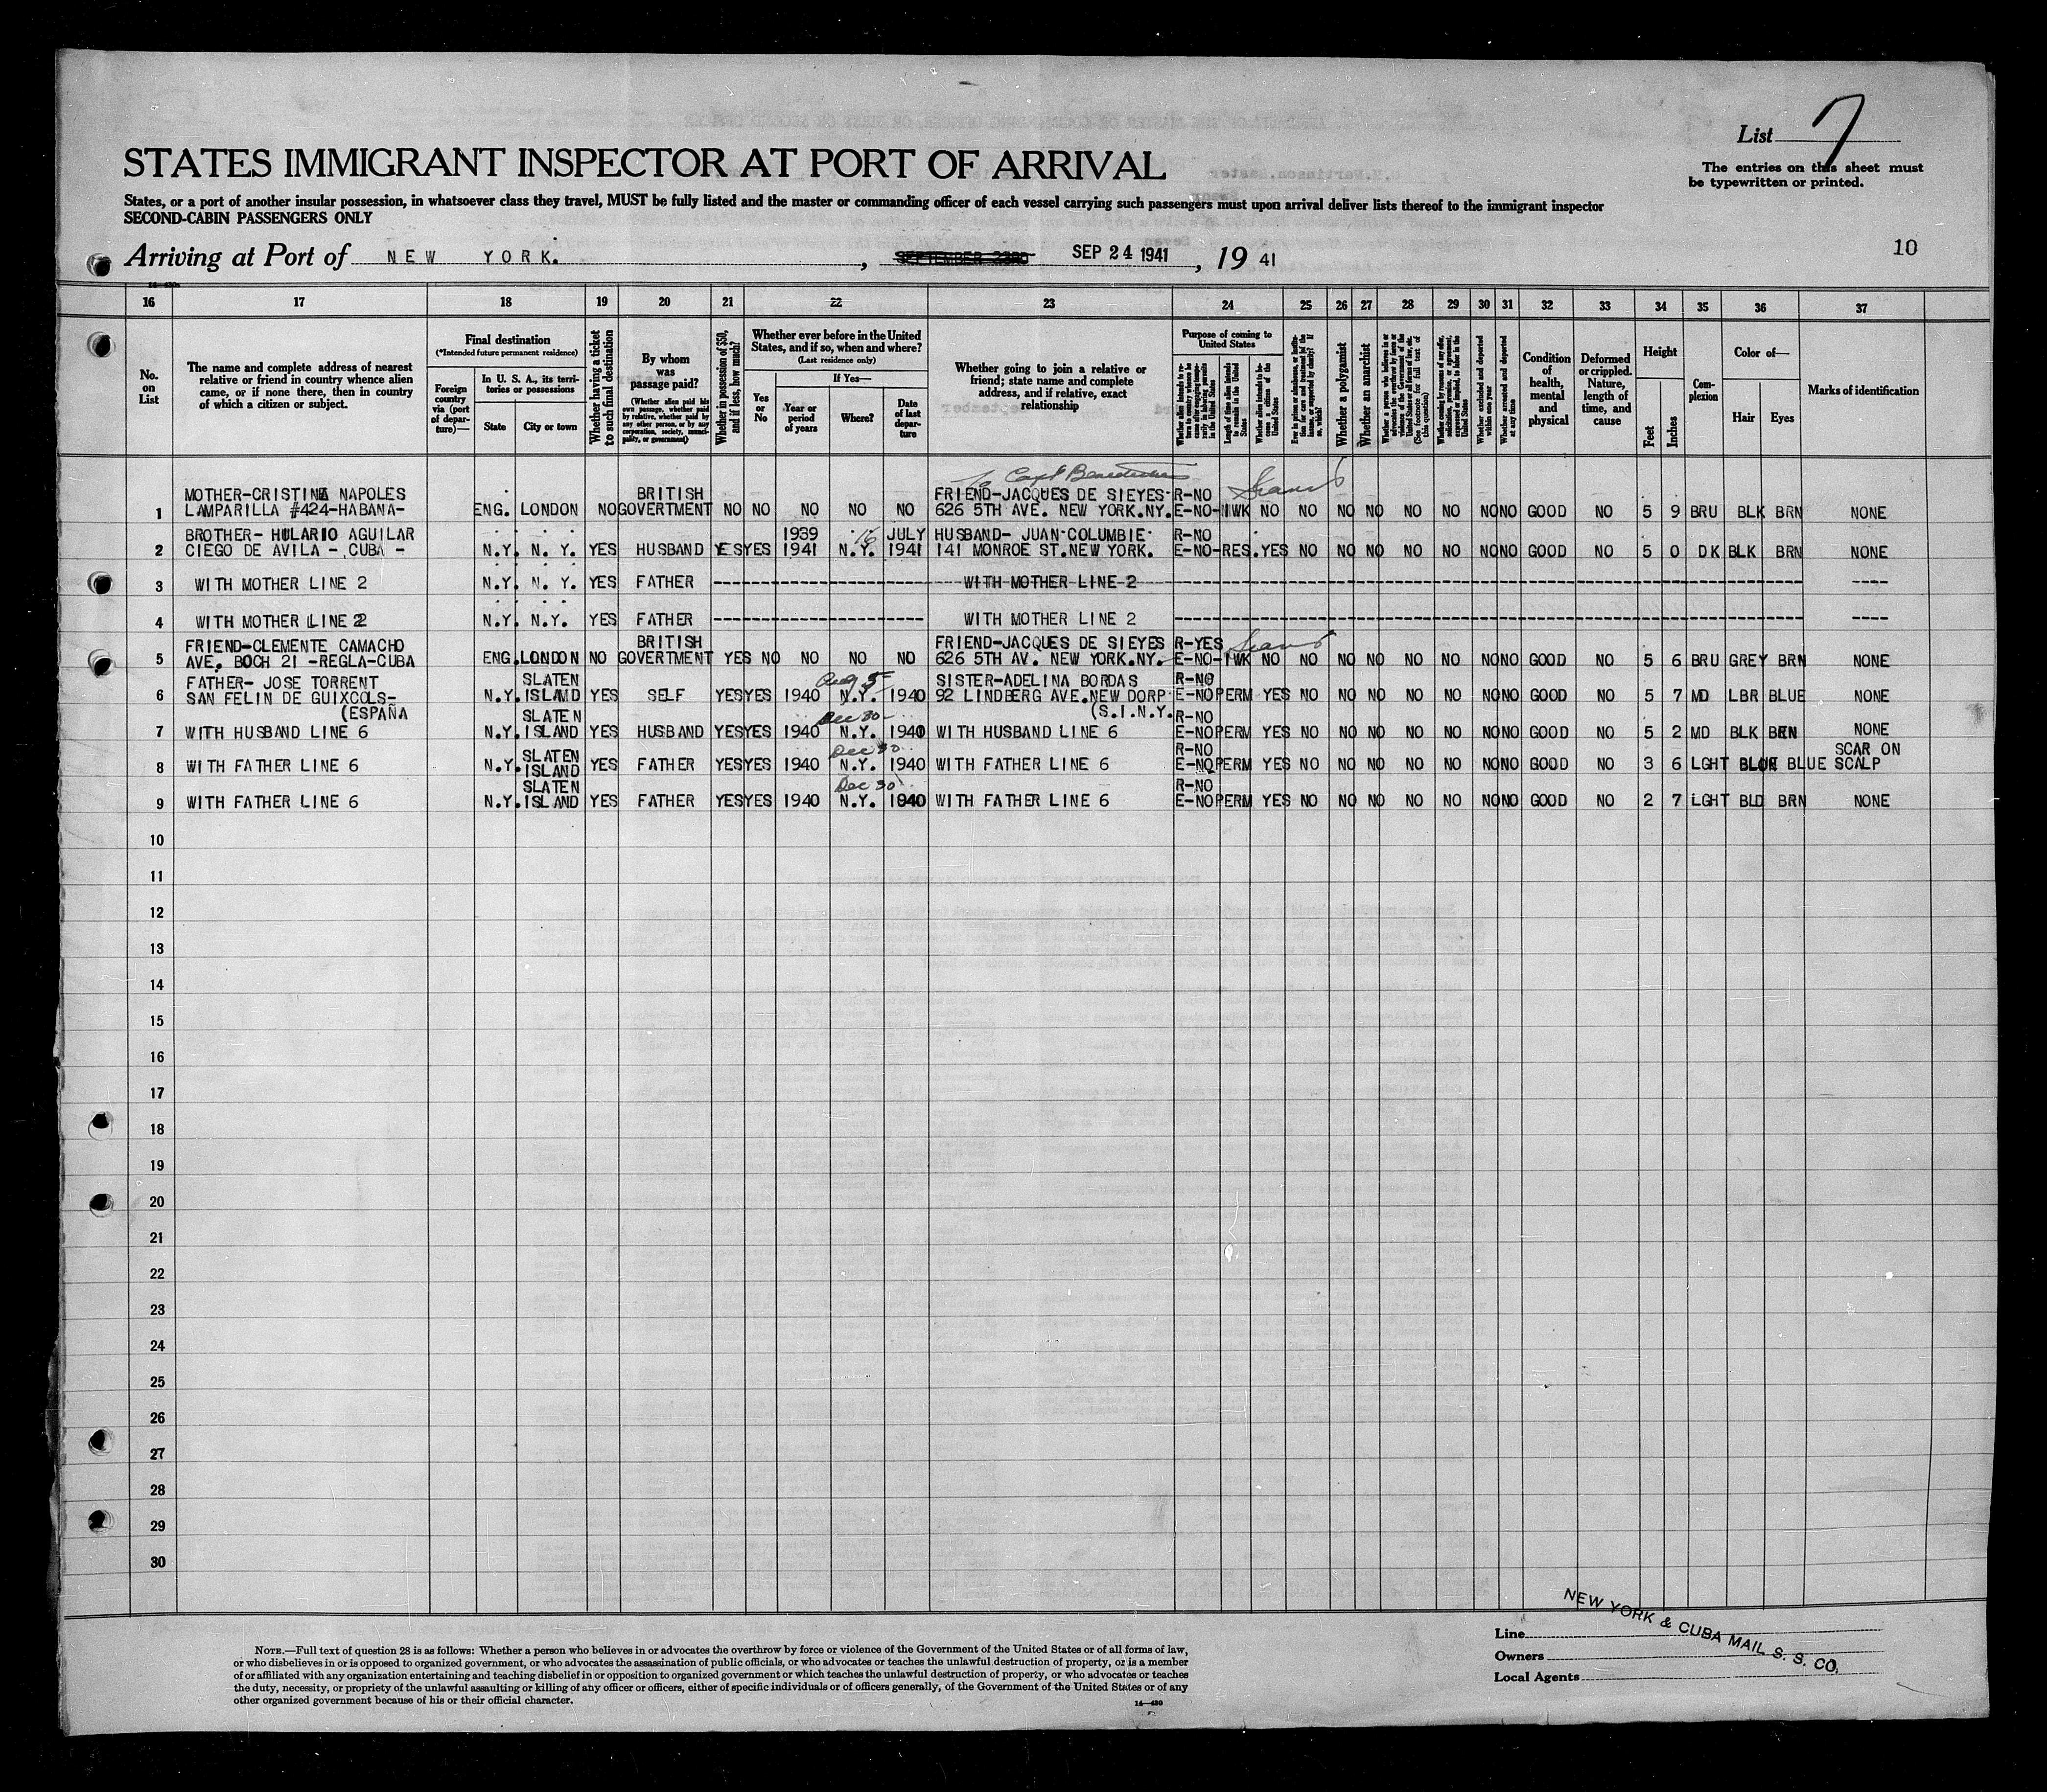 List 7
STATES IMMIGRANT INSPECTOR AT PORT OF ARRIVAL
The entries on this sheet must
be typewritten or printed.
States, or a port of another insular possession, in whatsoever class they travel, MUST be fully listed and the master or commanding officer of each vessel carrying such passengers must upon arrival deliver lists thereof to the immigrant inspector
SECOND-CABIN PASSENGERS ONLY
10
Arriving at Port of NEW YORK. , SEPTEMBER 23RD SEP 24 1941 , 19 41
16 17 18 19 20 21 22 23 24 25 26 27 28 29 30 31 32 33 34 35 36 37
No. on List
The name and complete address of nearest relative or friend in country whence alien came, or if none there, then in country of which a citizen or subject.
Final destination
(*Intended future permanent residence)
Foreign country via (port of departure)—
In U. S. A., its territories or possessions
State
City or town
Whether having a ticket to such final destination
By whom was passage paid?
(Whether alien paid his own passage, whether paid by relative, whether paid by any other person, or by any corporation, society, municipality, or government)
Whether in possession of $50, and if less, how much?
Whether ever before in the United States, and if so, when and where?
(Last residence only)
Yes or No
If Yes—
Year or period of years
Where?
Date of last departure
Whether going to join a relative or friend; state name and complete address, and if relative, exact relationship
Purpose of coming to United States
Length of time alien intends to remain in the United States
Whether alien intends to become a citizen of the United States
Whether a polygamist
Whether an anarchist
Whether excluded and deported within one year
Whether arrested and deported at any time
Condition of health, mental and physical
Deformed or crippled. Nature, length of time, and cause
Height
Feet
Inches
Complexion
Color of—
Hair
Eyes
Marks of identification
To Capt
1 MOTHER-CRISTINA NAPOLES LAMPARILLA #424-HABANA- ENG. LONDON NO BRITISH GOVERTMENT NO NO NO NO NO FRIEND-JACQUES DE SIEYES- 626 5TH AVE. NEW YORK.NY. R-NO E-NO-1WK NO NO NO NO NO NO NO NO GOOD NO 5 9 BRU BLK BRN NONE
2 BROTHER- HULARIO AGUILAR CIEGO DE AVILA - CUBA - N.Y. N. Y. YES HUSBAND YES YES 1939 1941 16 N.Y. JULY 1941 HUSBAND- JUAN-COLUMBIE- 141 MONROE ST.NEW YORK. R-NO E-NO-RES. YES NO NO NO NO NO NO NO GOOD NO 5 0 DK BLK BRN NONE
3 WITH MOTHER LINE 2 N.Y. N. Y. YES FATHER ---- WITH MOTHER LINE 2 ---- ----
4 WITH MOTHER LINE 2 N.Y. N.Y. YES FATHER ---- WITH MOTHER LINE 2 ---- ----
5 FRIEND-CLEMENTE CAMACHO AVE. BOCH 21 -REGLA-CUBA ENG. LONDON NO BRITISH GOVERTMENT YES NO NO NO NO FRIEND-JACQUES DE SIEYES 626 5TH AV. NEW YORK.NY. R-YES E-NO-1WK NO NO NO NO NO NO NO NO GOOD NO 5 6 BRU GREY BRN NONE
6 FATHER- JOSE TORRENT SAN FELIN DE GUIXCOLS- (ESPAÑA N.Y. SLATEN ISLAND YES SELF YES YES 1940 Aug 5 N.Y. 1940 SISTER-ADELINA BORDAS 92 LINDBERG AVE.NEW DORP (S.I.N.Y. R-NO E-NO PERM YES NO NO NO NO NO NO NO GOOD NO 5 7 MD LBR BLUE NONE
7 WITH HUSBAND LINE 6 N.Y. SLATEN ISLAND YES HUSBAND YES YES 1940 Dec 30 N.Y. 1940 WITH HUSBAND LINE 6 R-NO E-NO PERM YES NO NO NO NO NO NO NO GOOD NO 5 2 MD BLK BRN NONE
8 WITH FATHER LINE 6 N.Y. SLATEN ISLAND YES FATHER YES YES 1940 Dec 30 N.Y. 1940 WITH FATHER LINE 6 R-NO E-NO PERM YES NO NO NO NO NO NO NO GOOD NO 3 6 LGHT BLUE SCAR ON SCALP
9 WITH FATHER LINE 6 N.Y. SLATEN ISLAND YES FATHER YES YES 1940 Dec 30 N.Y. 1940 WITH FATHER LINE 6 R-NO E-NO PERM YES NO NO NO NO NO NO NO GOOD NO 2 7 LGHT BLD BRN NONE
10
11
12
13
14
15
16
17
18
19
20
21
22
23
24
25
26
27
28
29
30
NOTE.—Full text of question 28 is as follows: Whether a person who believes in or advocates the overthrow by force or violence of the Government of the United States or of all forms of law,
or who disbelieves in or is opposed to organized government, or who advocates the assassination of public officials, or who advocates or teaches the unlawful destruction of property, or is a member
of or affiliated with any organization entertaining and teaching disbelief in or opposition to organized government or which teaches the unlawful destruction of property, or who advocates or teaches
the duty, necessity, or propriety of the unlawful assaulting or killing of any officer or officers, either of specific individuals or of officers generally, of the Government of the United States or of any
other organized government because of his or their official character.
14—430
Line
Owners
Local Agents
NEW YORK & CUBA MAIL S. S. CO.